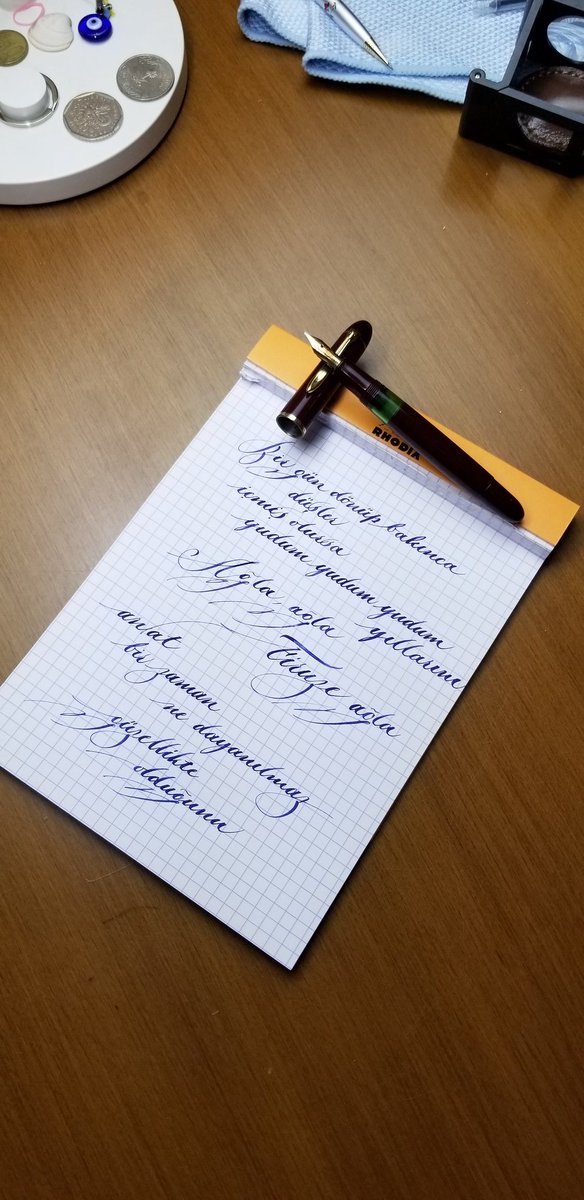 RHODIA
Bir gün dönüp bakınca
düşler
içmiş olursa
yudum yudum yudum
yıllarını
Ağla, ağla
Firuze ağla
anlat
bir zaman
ne dayanılmaz
güzellikte
olduğunu